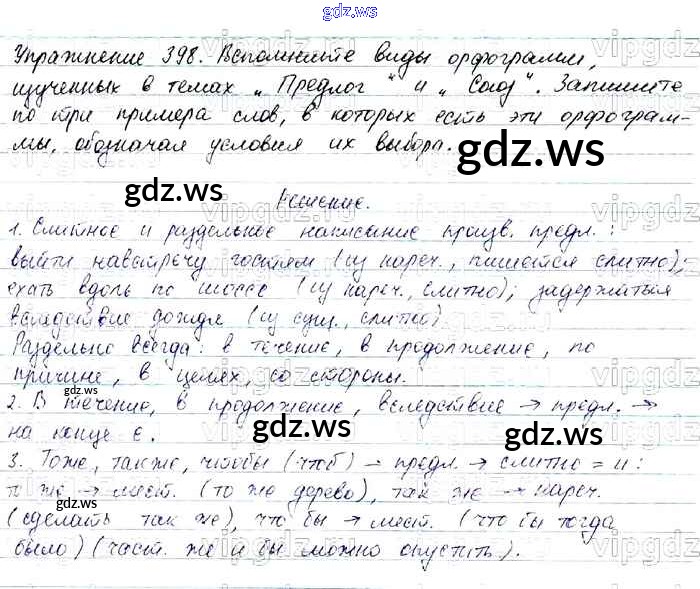 gdz.ws
Упражнение 398. Вспомните виды орфограмм,
изученных в темах „Предлог“ и „Союз“. Запишите
по три примера слов, в которых есть эти орфограм-
мы, обозначая условия их выбора.
gdz.ws
gdz.ws
Решение.
1. Слитное и раздельное написание произв. предл.:
выйти навстречу гостям (из нареч., пишется слитно);
ехать вдоль по шоссе (из нареч., слитно); задержаться
вследствие дождя (из сущ., слитно)
Раздельно всегда: в течение, в продолжение, по
причине, в целях, со стороны.
gdz.ws
2. В течение, в продолжение, вследствие → предл. →
на конце е.
gdz.ws
gdz.ws
3. Тоже, также, чтобы (чтоб) – предл. → слитно = и:
то же → мест. (то же дерево), так же → нареч.
gdz.ws
(сделать так же), что бы → мест. (что бы тогда
было) (част. же и бы можно опустить).
gdz.ws